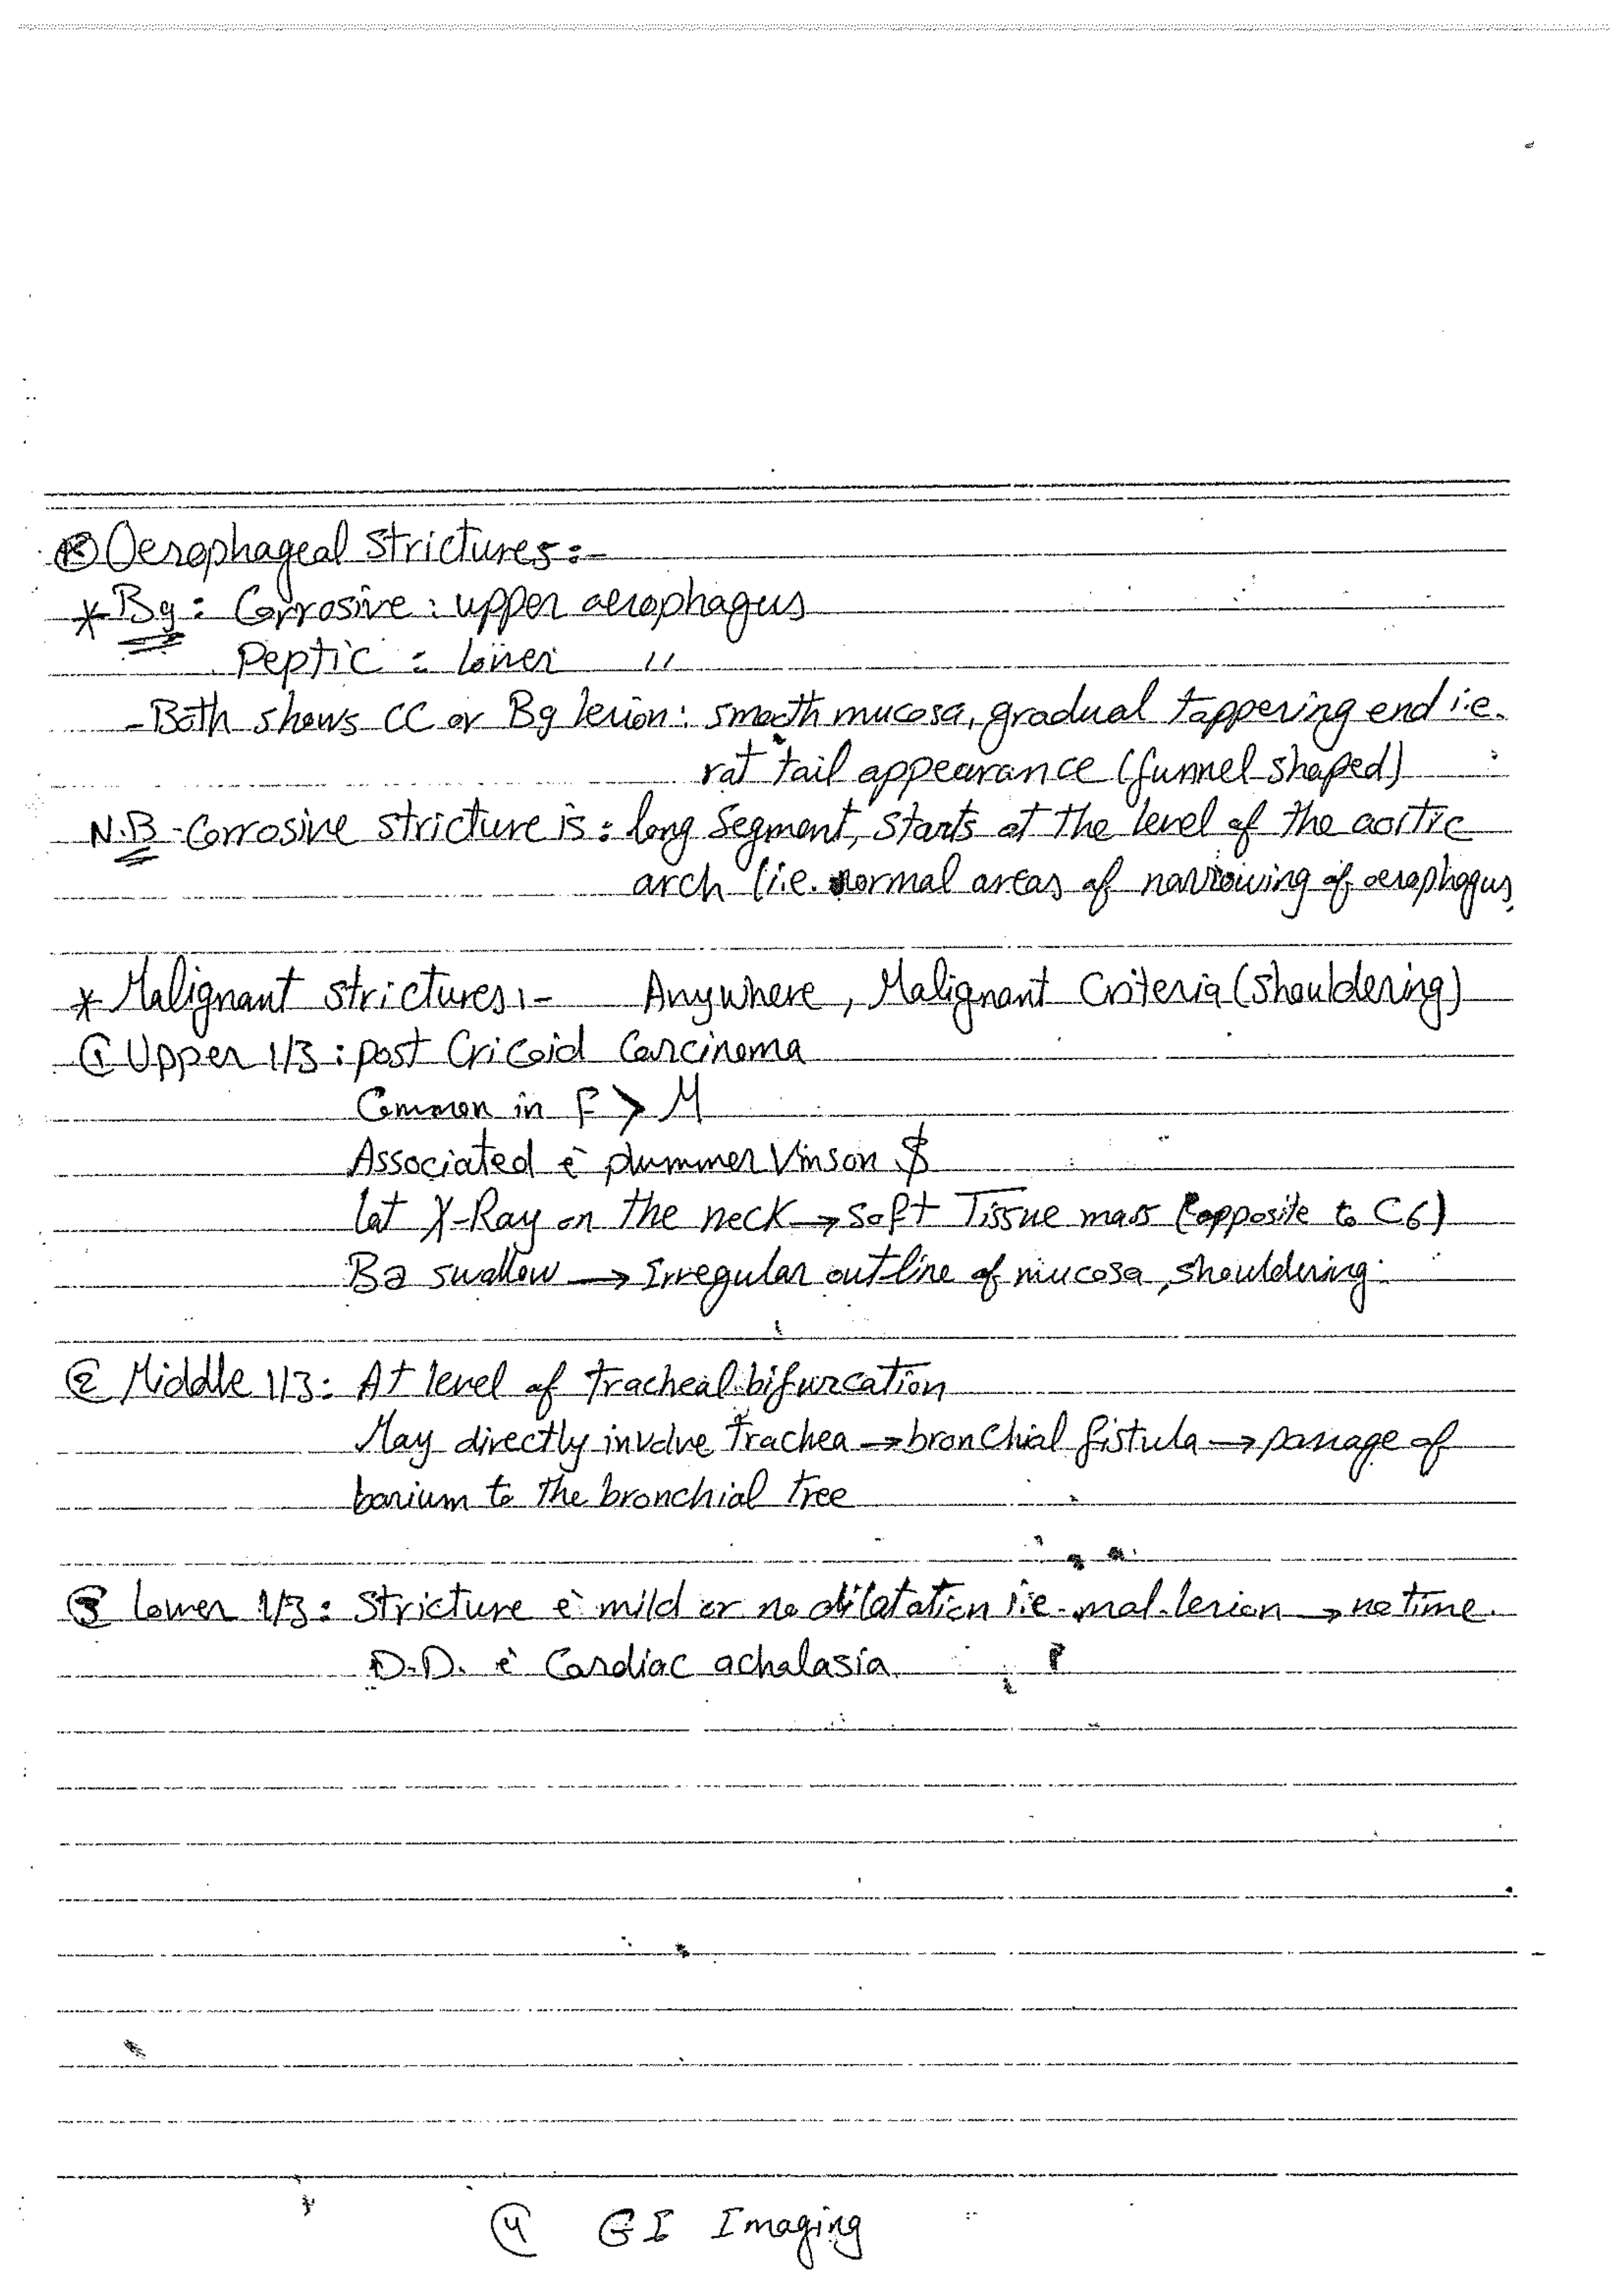 Oesophageal strictures:-
* Bg: Corrosive: upper oesophagus
Peptic: lower "
- Both shows CC or Bg lesion: smooth mucosa, gradual tappering end i.e.
rat tail appearance (funnel shaped)
N.B - Corrosive stricture is: long segment, starts at the level of the aortic
arch (i.e. normal areas of narrowing of oesophagus
* Malignant strictures:- Anywhere, Malignant Criteria (shouldering)
① Upper 1/3: post Cricoid Carcinoma
Common in F > M
Associated è plummer Vinson $
lat X-Ray on the neck → soft Tissue mass (opposite to C6)
Ba swallow → Irregular outline of mucosa, shouldering.
② Middle 1/3: At level of tracheal bifurcation
May directly involve trachea → bronchial fistula → passage of
barium to the bronchial tree
③ lower 1/3: Stricture è mild or no dilatation i.e. mal. lesion → no time.
D.D. è Cardiac achalasia
④ GI Imaging